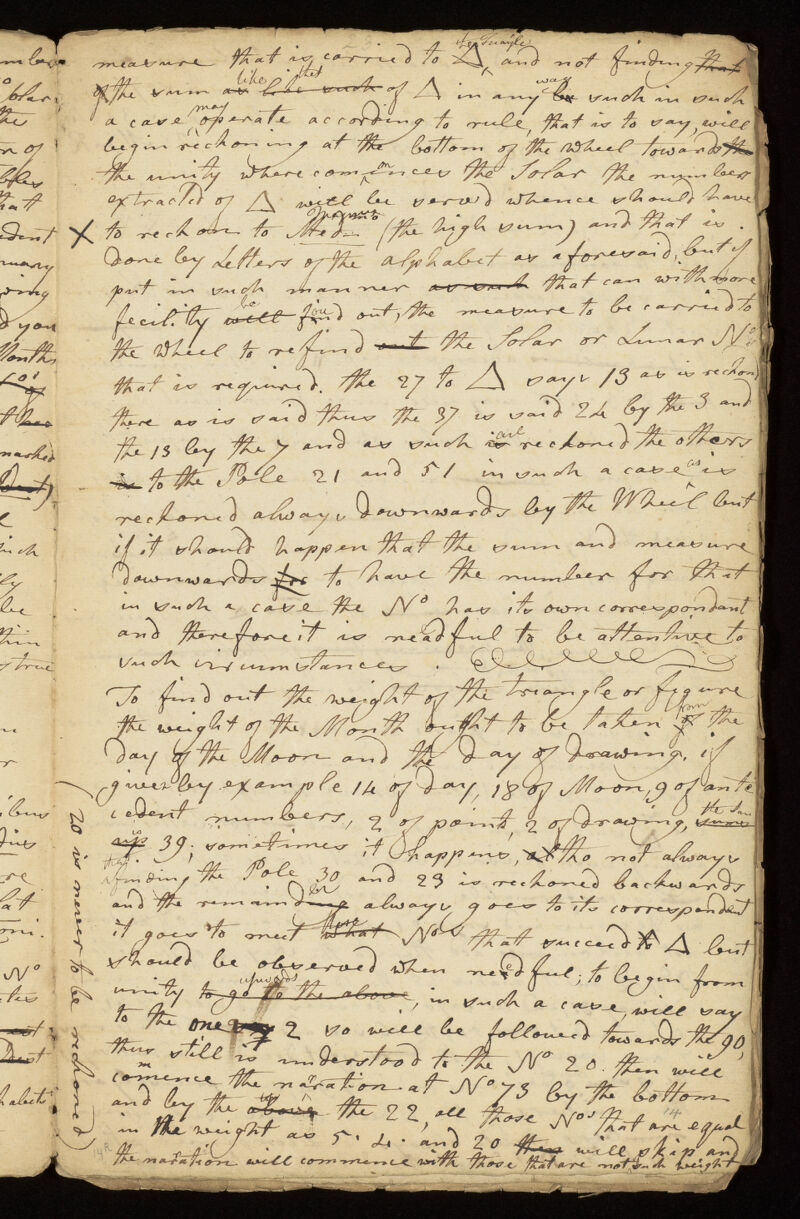 measure that is carried to △ the Triangle, and not finding that
of the sum as like such that of △ in any be way such in such
a case may operate according to rule, that is to say, will
begin reckoning at the bottom of the wheel towards the
the unity where comences the Solar the numbers
extracted of △ will be served whence should have
X to reckon to Med (the high sum) and that is
done by Letters of the alphabet as aforesaid. but if
put in such manner as such that can with more
fecility will be find you out, the measure to be carried to
the wheel to refind out the Solar or Lunar Nos
that is required. the 27 to △ says 13 as is reckond
there as is said thus the 37 is said 24 by the 3 and
the 13 by the 7 and as such is are reckoned the others
is to the Pole 21 and 51 in such a case as is
reckoned always downwards by the Wheel but
if it should happen that the sum and measure
downwards for to have the number for that
in such a case the No has its own correspondant
and therefore it is needful to be attentive to
such circumstances.
To find out the weight of the triangle or figure
the weight of the Month ought to be taken of from the
day of the Moon and the day of drawing. if
given by example 14 of day, 18 of Moon, 9 of ante
cedent numbers, 2 of point, 2 of drawing, the sum
is 39; sometimes it happens, altho not always
that finding the Pole 30 and 23 is reckoned backwards
and the remainder always goes to its correspondent
it goes to meet what those Nos that succeed to △ but
should be observed when needful; to begin from
unity to go to the above upwards, in such a case, will say
to the one say 2 so will be followed towards the 90,
thus still is understood to the No 20. then will
comence the naration at No 73 by the bottom
and by the above the 22, all those Nos that are equal
in the weight as 5. 4. and 20 then will skip and
the naration will commence with those that are not such weight
(20 is never to be reckoned)